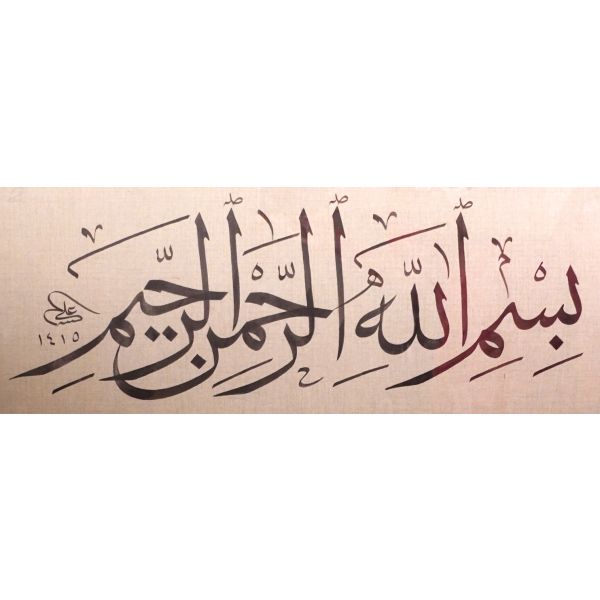 بِسْمِ ٱللَّهِ ٱلرَّحْمَٰنِ ٱلرَّحِيمِ
علي
١٤١٥